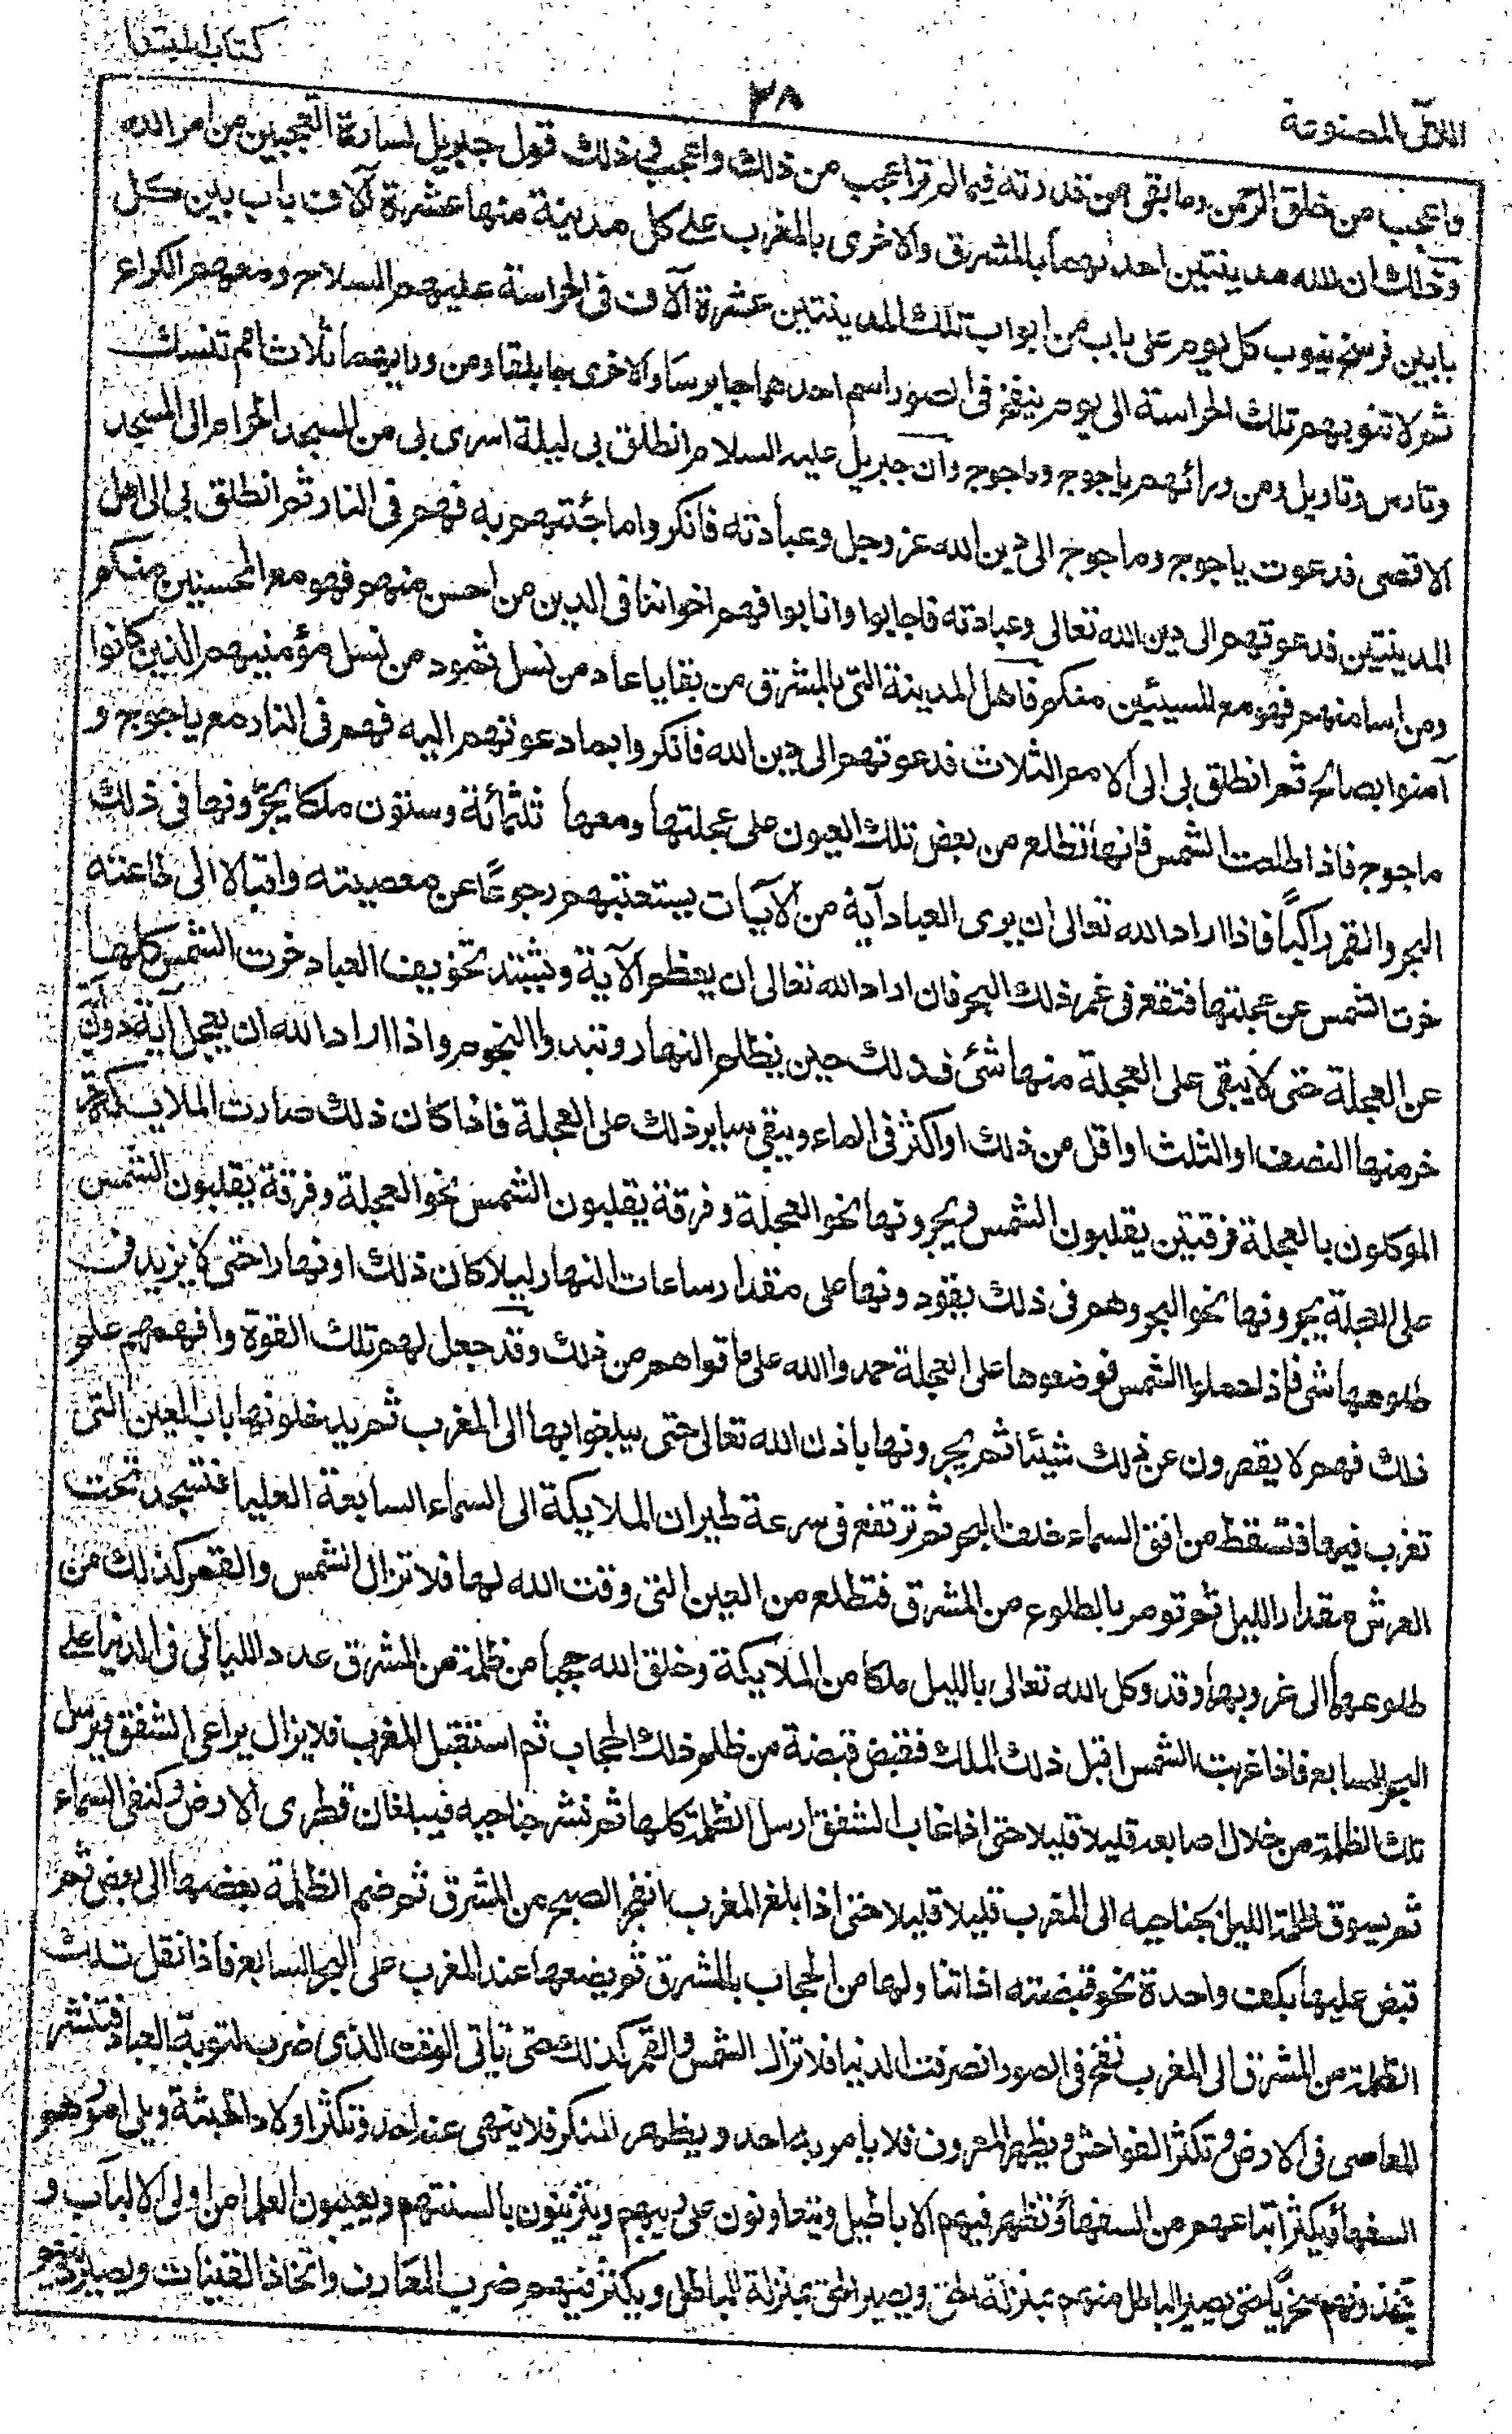 اللآلئ المصنوعة
٢٨
كتاب المبتدا
فاعجب من خلق الرحمن وما بقى من قدرته فيما لم نر اعجب من ذلك واعجب فى ذلك قول جبريل لسارة اتعجبين من امر الله
وذلك ان لله مدينتين احدٰهما بالمشرق والاخرى بالمغرب على كل مدينة منها عشرة آلاف باب بين كل
بابين فرسخ ينوب كل يوم على باب من ابواب تلك المدينتين عشرة آلاف فى الحراسة عليهم السلاح ومعهم الكراع
ثم لا تنوبهم تلك الحراسة الى يوم ينفخ فى الصور اسم احدهما جابرسا والاخرى جابلقا ومن ورايهما ثلاث امم تنسك
وتارس وتاويل ومن ورائهم ياجوج وماجوج وان جبريل عليه السلام انطلق بى ليلة اسرى بى من المسجد الحرام الى المسجد
الاقصى فدعوت ياجوج وماجوج الى دين الله عز وجل وعبادته فانكروا ما جئتهم به فهم فى النار ثم انطلق بى الى اهل
المدينتين فدعوتهم الى دين الله تعالى وعبادته فاجابوا وانابوا فهم اخواننا فى الدين من احسن منهم فهو مع المحسنين منكم
ومن اسا منهم فهو مع المسيئين منكم فاهل المدينة التى بالمشرق من بقايا عاد من نسل ثمود من نسل مؤمنيهم الذين كانوا
آمنوا بصالح ثم انطلق بى الى الامم الثلاث فدعوتهم الى دين الله فانكروا بما دعوتهم اليه فهم فى النار مع ياجوج و
ماجوج فاذا طلعت الشمس فانها تطلع من بعض تلك العيون على عجلتها ومعها ثلثمائة وستون ملكا يجرونها فى ذلك
البحر والقمر راكبًا فاذا اراد الله تعالى ان يرى العباد آية من الآيات يستعتبهم رجوعًا عن معصيته واقبالا الى طاعته
خرت الشمس عن عجلتها فتقع فى غمر ذلك البحر فان اراد الله تعالى ان يعظم الآية ويشتد تخويف العباد خرت الشمس كلها
عن العجلة حتى لا يبقى على العجلة منها شئ فذلك حين يظلم النهار وتبدوا النجوم واذا اراد الله ان يعجل آية دون آية
خر منها النصف او الثلث او اقل من ذلك او اكثر فى الماء ويبقى ساير ذلك على العجلة فاذا كان ذلك صارت الملايكة
الموكلون بالعجلة فرقتين يقلبون الشمس ويجرونها نحو العجلة وفرقة يقلبون الشمس نحو العجلة وفرقة يقلبون الشمس
على العجلة يجرونها نحو البحر وهم فى ذلك يقودونها على مقدار ساعات النهار ليلا كان ذلك او نهارا حتى لا يزيد فى
طلوعها شئ فاذا حملوا الشمس فوضعوها على العجلة حمدوا الله على ما قواهم من ذلك وقد جعل لهم تلك القوة وافهمهم علم
ذلك فهم لا يقصرون عن ذلك شيئا ثم يجرونها باذن الله تعالى حتى يبلغوا بها الى المغرب ثم يدخلونها باب العين التى
تغرب فيها فتسقط من افق السماء خلف البحر ثم ترتفع فى سرعة طيران الملايكة الى السماء السابعة العليا فتسجد تحت
العرش مقدار الليل ثم تومر بالطلوع من المشرق فتطلع من العين التى وقت الله لها فلا تزال الشمس والقمر كذلك من
طلوعهما الى غروبهما وقد وكل الله تعالى بالليل ملكا من الملايكة وخلق الله حجبا من ظلمة من المشرق عدد الليالى فى الدنيا على
البحر السابع فاذا غربت الشمس اقبل ذلك الملك فقبض قبضة من ظلم ذلك الحجاب ثم استقبل المغرب فلا يزال يراعى الشفق ويرسل
تلك الظلمة من خلال اصابعه قليلا قليلا حتى اذا غاب الشفق ارسل الظلمة كلها ثم نشر جناحيه فيبلغان قطرى الارض وكنفى السماء
ثم يسوق ظلمة الليل بجناحيه الى المغرب قليلا قليلا حتى اذا بلغ المغرب انفجر الصبح من المشرق ثم ضم الظلمة بعضها الى بعض ثم
قبض عليها بكف واحدة نحو قبضته اذا تناولها من الحجاب بالمشرق ثم يضعها عند المغرب على البحر السابع فاذا نقل تلك
الظلمة من المشرق الى المغرب نفخ فى الصور انصرفت الدنيا فلا تزال الشمس والقمر كذلك حتى ياتى الوقت الذى ضرب لتوبة العباد فتنتشر
المعاصى فى الارض وتكثر الفواحش ويظهر المعروف فلا يامر به احد ويظهر المنكر فلا ينهى عنه احد وتكثر اولاد الخبثة ويلى امورهم
السفهاء ويكثر اتباعهم من السفهاء وتظهر فيهم الاباطيل ويتعاونون على ريبهم ويتزينون بالسنتهم ويعيبون العلما من اولى الالباب و
يتخذونهم سخريا حتى يصير الباطل منهم بمنزلة الحق ويصير الحق بمنزلة الباطل ويكثر فيهم ضرب المعازف واتخاذ القينات ويصير